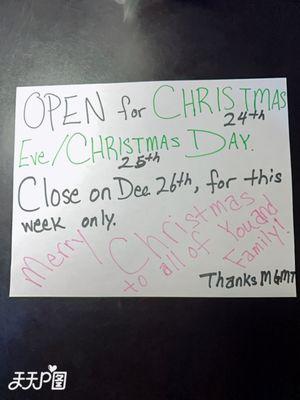 OPEN for CHRISTMAS
24th
Eve/CHRISTMAS DAY.
25th
Close on Dec. 26th, for this
week only.
Merry Christmas
to all of You and
Family!
Thanks MGMT
天天P图